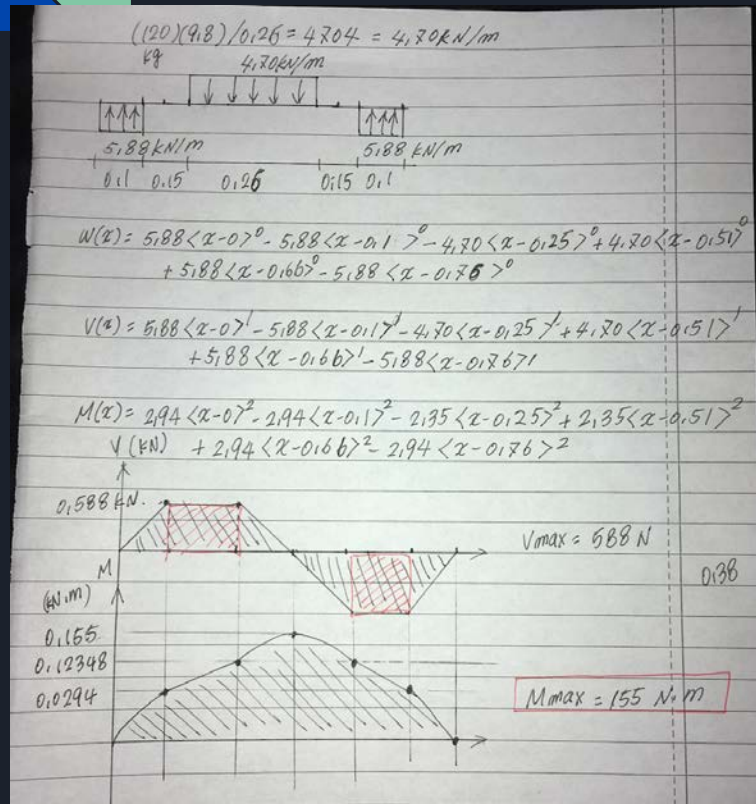 ((120)(9,8)/0,26 = 4704 = 4,70kN/m
kg
4,70kN/m
5,88 kN/m
5,88 kN/m
0,1 0,15 0,26 0,15 0,1
W(x) = 5,88<x-0>⁰ - 5,88<x-0,1>⁰ - 4,70<x-0,25>⁰ + 4,70<x-0,51>⁰
+ 5,88<x-0,66>⁰ - 5,88<x-0,76>⁰
V(x) = 5,88<x-0>¹ - 5,88<x-0,1>¹ - 4,70<x-0,25>¹ + 4,70<x-0,51>¹
+5,88<x-0,66>¹ - 5,88<x-0,76>1
M(x) = 2,94<x-0>² - 2,94<x-0,1>² - 2,35<x-0,25>² + 2,35<x-0,51>²
+ 2,94<x-0,66>² - 2,94<x-0,76>²
V (kN)
0,588 kN.
Vmax = 588 N
0,38
M
(kN.m)
0,155
0,12348
0,0294
Mmax = 155 N.m